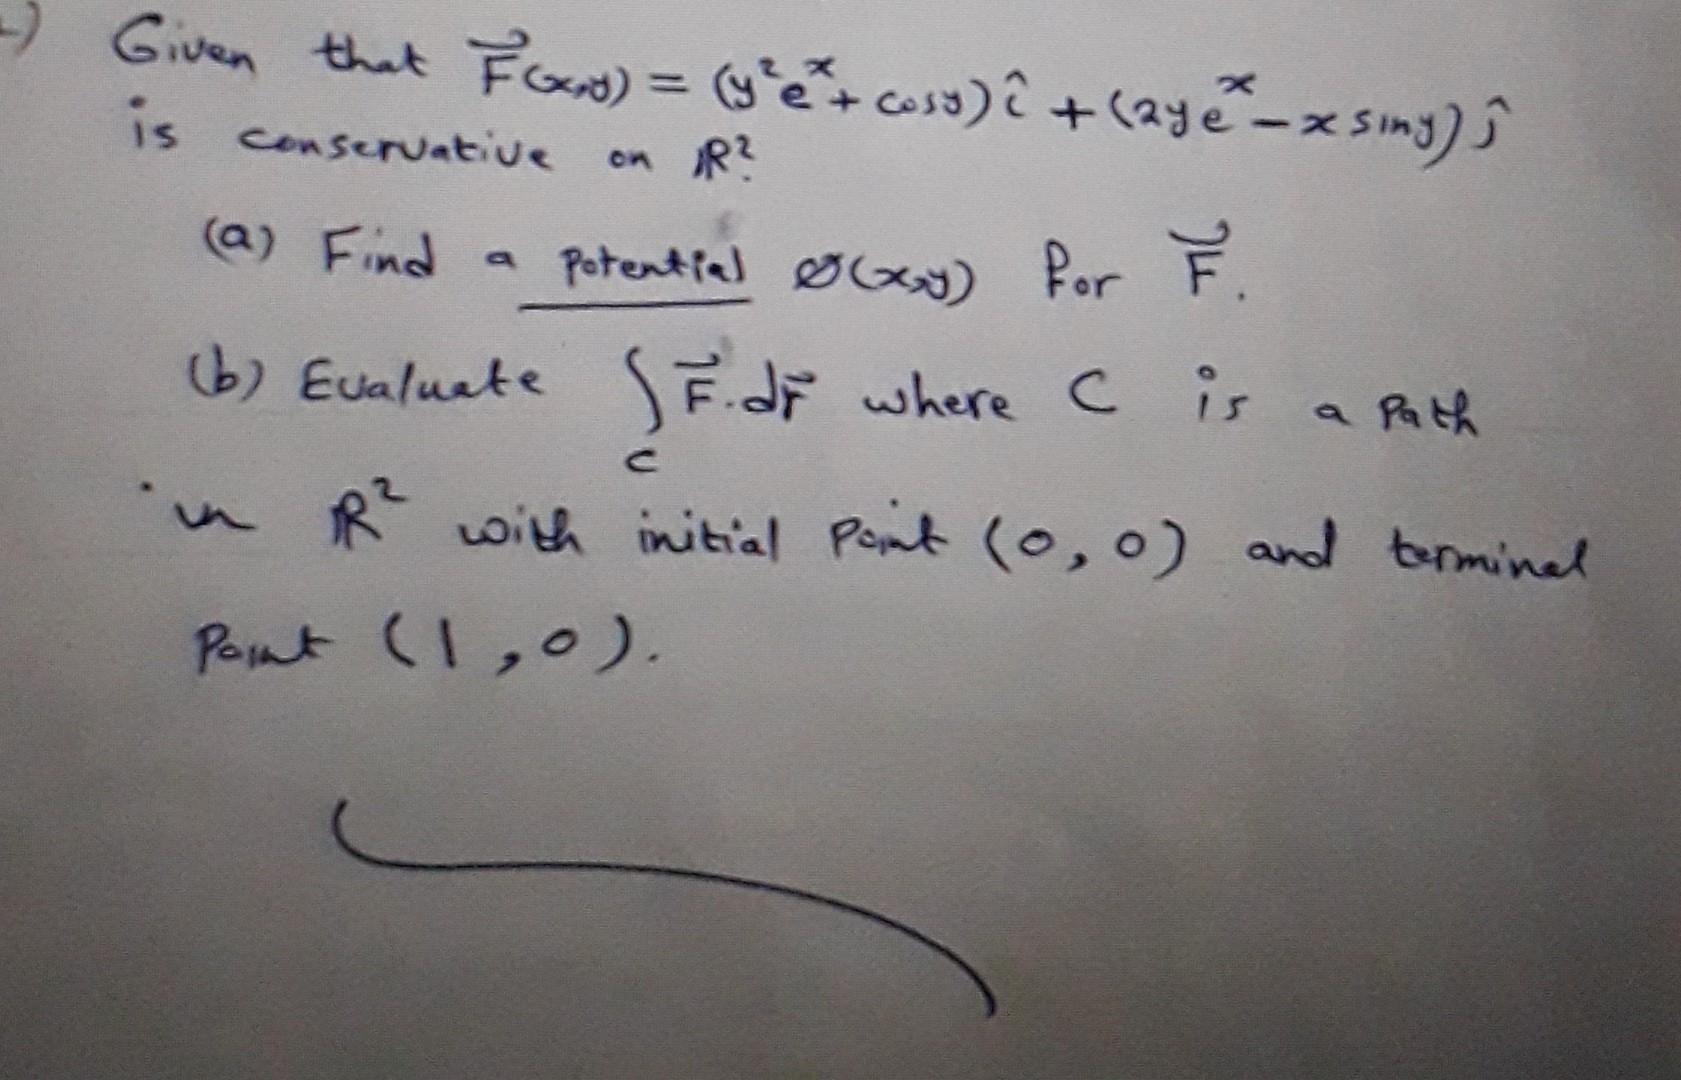 Given that F⃗(x,y) = (y²eˣ + cosy) î + (2yeˣ - x siny) ĵ
is conservative on ℝ².
(a) Find a potential Ø(x,y) for F⃗.
(b) Evaluate ∫_C F⃗.dr⃗ where C is a path
in ℝ² with initial point (0,0) and terminal
point (1,0).